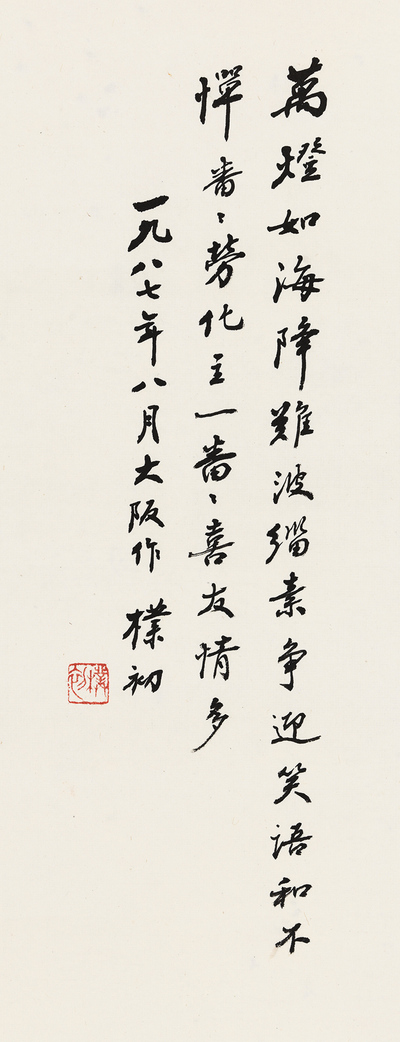 萬燈如海降難波緇素争迎笑語和不
憚番〻勞化主一番〻喜友情多
一九八七年八月大阪作 樸初
樸初